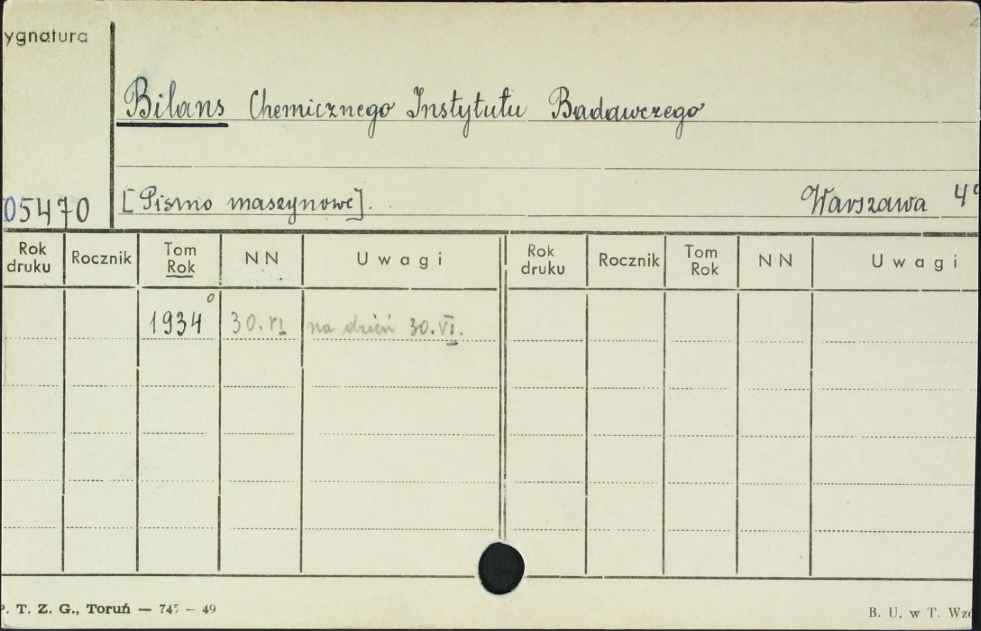 ygnatura
Bilans Chemicznego Instytutu Badawczego
05470 [Pismo maszynowe]. Warszawa 4°
Rok druku Rocznik Tom Rok N N Uwagi Rok druku Rocznik Tom Rok N N Uwagi
1934 30.VI na dzień 30.VI.
P. T. Z. G., Toruń — 745 — 49 B. U. w T. Wzó